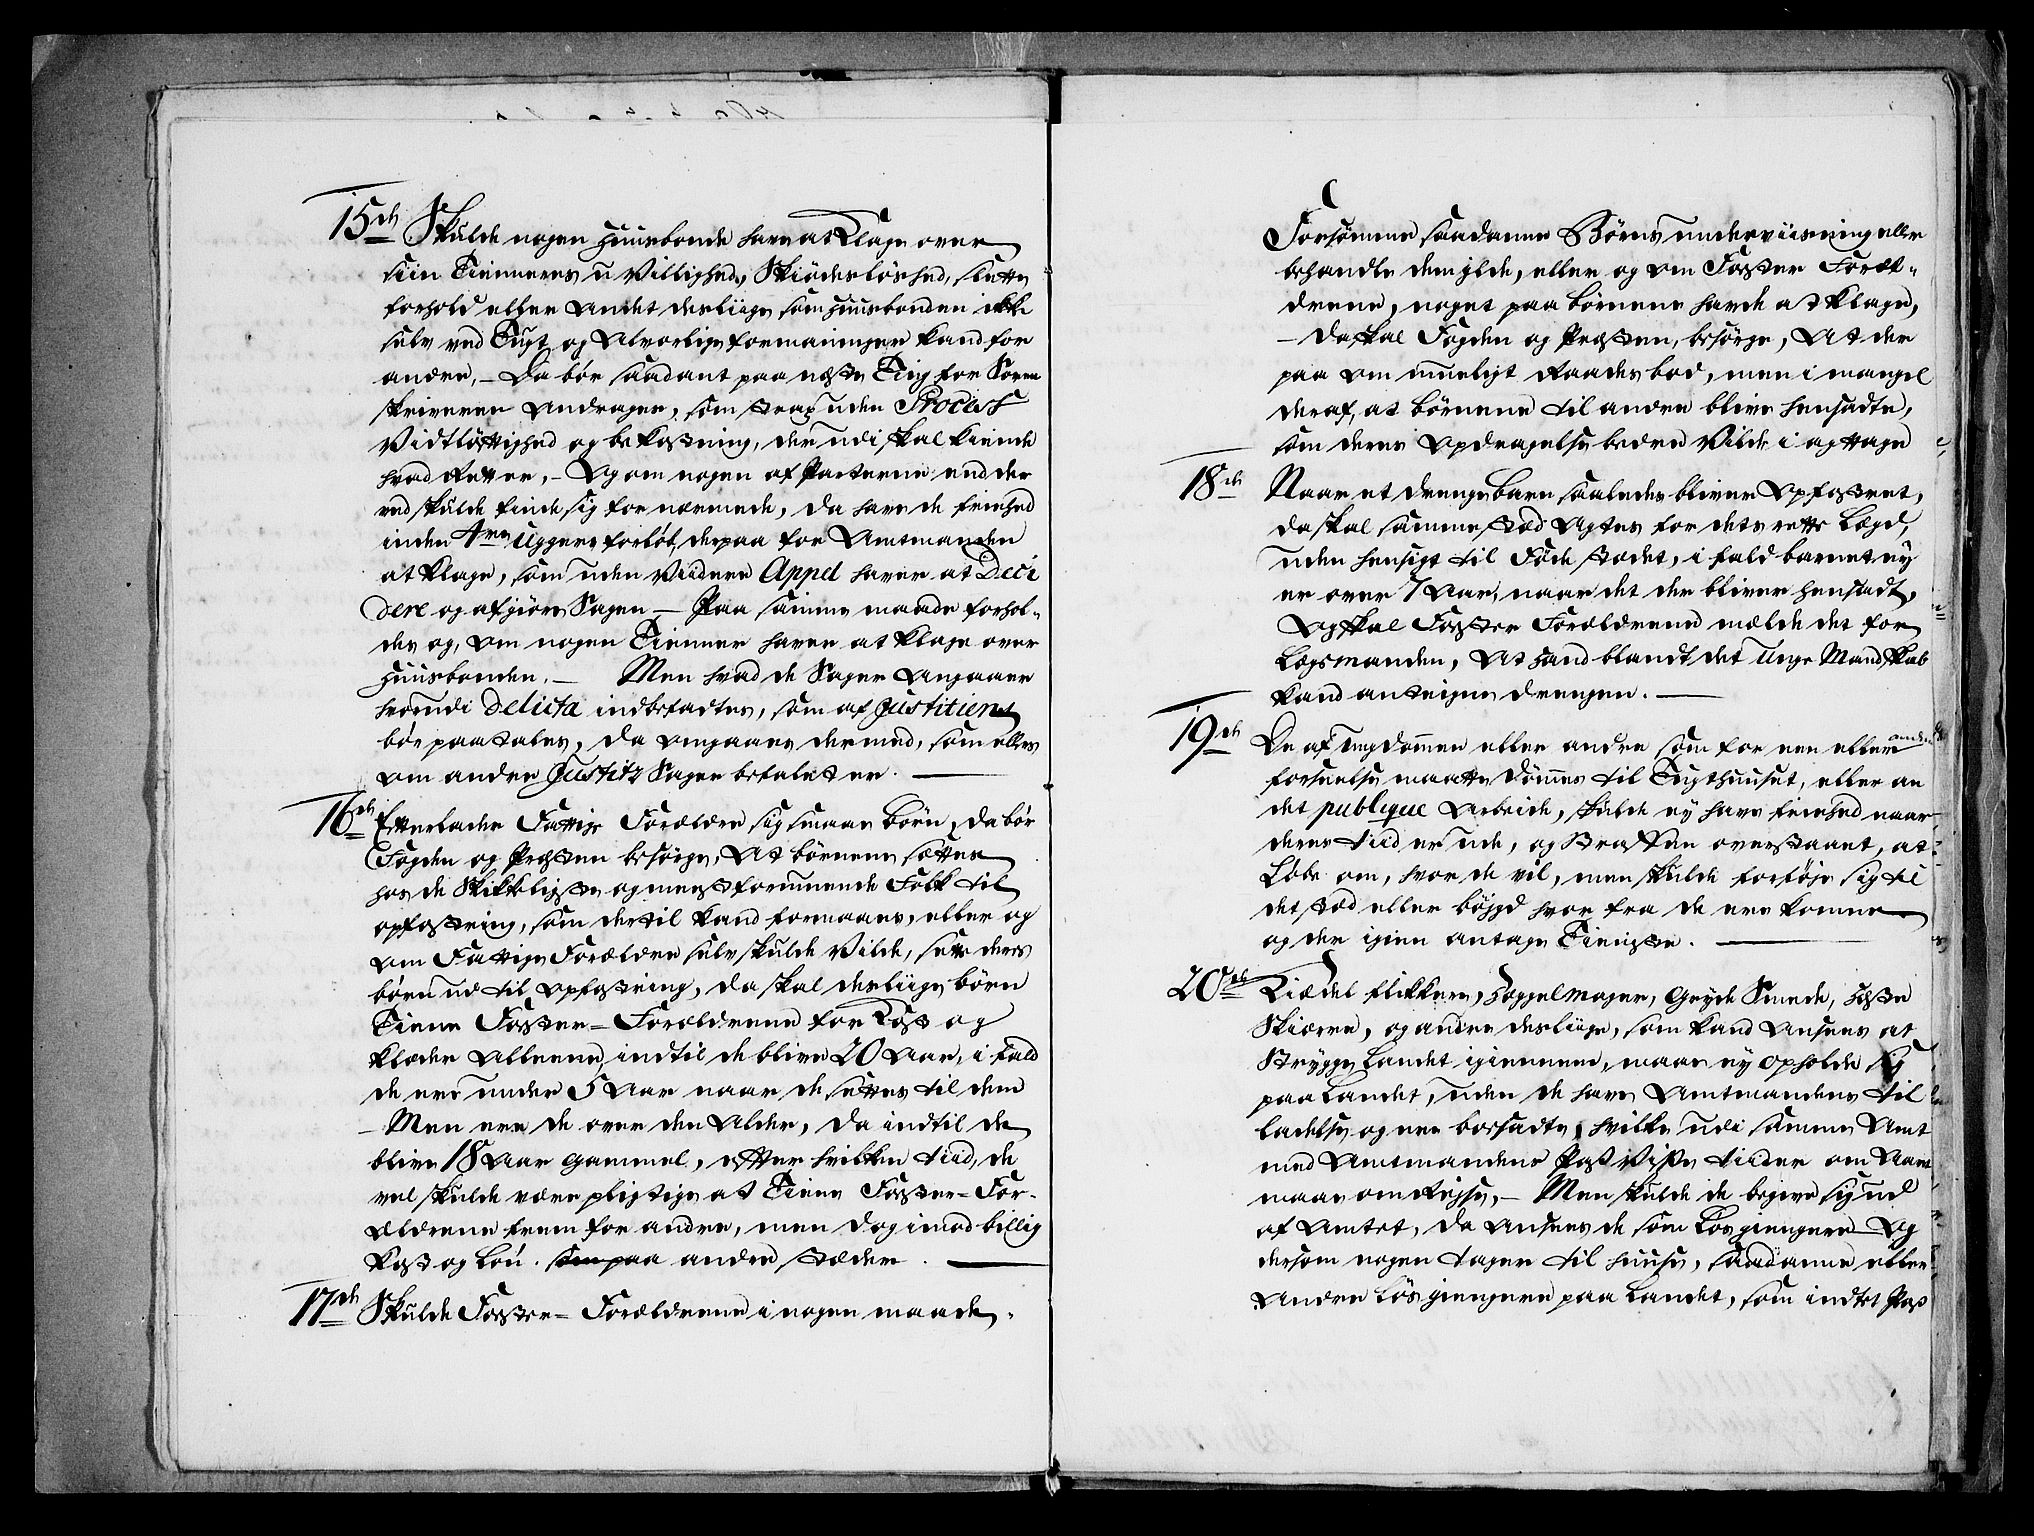 15de Skulde nogen Huusbonde have at Klage over
siin Tienneres u Villighed, Skiødesløshed, slette
forhold eller Andet desliige som Huusbonden ikke
selv ved Tugt og Alvorlige formaninger kand for
andre, – Da bør saadant paa næste Ting for Soren
skriveren Andrages, som strax uden Process
Vidtløftighed og bekostning, der udi skal kiende
hvad Ret er, – Og om nogen af Parterne end der
ved skulde finde sig for nærmede, da have de friehed
inden 4re Uggers forløb, derpaa for Amtmanden
at klage, som uden Viidere Appel haver at Deci
dere og afgiøre Sagen – Paa samme maade forhol-
des og, om nogen Tienner haver at klage over
Huusbonden. – Men hvad de Sager Angaaer
hvorudi Delicta indbefadtes, som af Justitien
bør paatales, da omgaaes dermed, som ellers
om andre Justitz Sager befalet er. –
16de Efterlader Fattige Forældre sig smaae Børn, da bør
Fogden og Præsten besørge, At børnene sættes
hos de Skikkeligste og meest formuende Folk til
opfostring, som dertil kand formaaes, eller og
om Fattige Forældre selv skulde Vilde, sette deres
børn ud til Opfostring, da skal desliige børn
Tiene Foster-Forældrene for Kost og
Klæder Alleene, indtil de blive 20 Aar, i fald
de ere under 5 Aar naar de settes til dem
– Men ere de over den Alder, da indtil de
blive 18 Aar Gammel, efter hvilken tiid, de
vel skulde være pligtige at Tiene Foster-For-
Ældrene frem for andre, men dog imod billig
Kost og Løn. som paa andre stæder. –
17de Skulde Foster-Forældrene i nogen maade,
Forsømme saadanne Børns underviisning eller
behandle dem ilde, eller og om Foster Foræl-
drene, noget paa børnene havde at klage,
– Da skal Fogden og Præsten, besørge, At der
paa om mueligt Raades bod, men i mangel
deraf, at børnene til andre blive hensadte,
som deres Opdragelse bedre Vilde i agttage
18de Naar et drengebarn saaledes bliver Opfostret,
da skal samme stæd Agtes for dets rette Lægd,
uden hensigt til Føde stædet, i fald barnet ey
er over 7 Aar, naar det der bliver hensadt,
Og skal Foster Forældrene melde det for
Lægsmanden, At Hand blandt det Unge Mandskab
kand anteigne drengen. –
19de De af Ungdommen eller andre som for een eller anden
forseelse maatte Dømmes til Tugthuuset, eller an
det publique Arbeide, skulde ey have friehed naar
deres tiid er ude, og Straffen overstaaet, at
Løbe om, hvor de vil, men skulde forføje sig til
det stæd eller bøygd hvor fra de ere komne
og der igien antage Tieniste. –
20de Kiædel flikkere, Hæggelmager, Gryde Smede, Heste
Skiærere, og andre desliige, som kand Ansees at
Strygge Landet igiennem, maae ey opholde sig
paa Landet, uden de have Amtmandens til
ladelse og ere bosadte, hvilke udi samme Amt
med Amtmandens Pass Visse tiider om Aaret
maae omreyse, – Men skulde de begive sig ud
af Amtet, da Ansees de som Løsgiengere Og
dersom nogen tager til huuse, saadanne eller
Andre Løsgiengere paa Landet, som indtet Pass